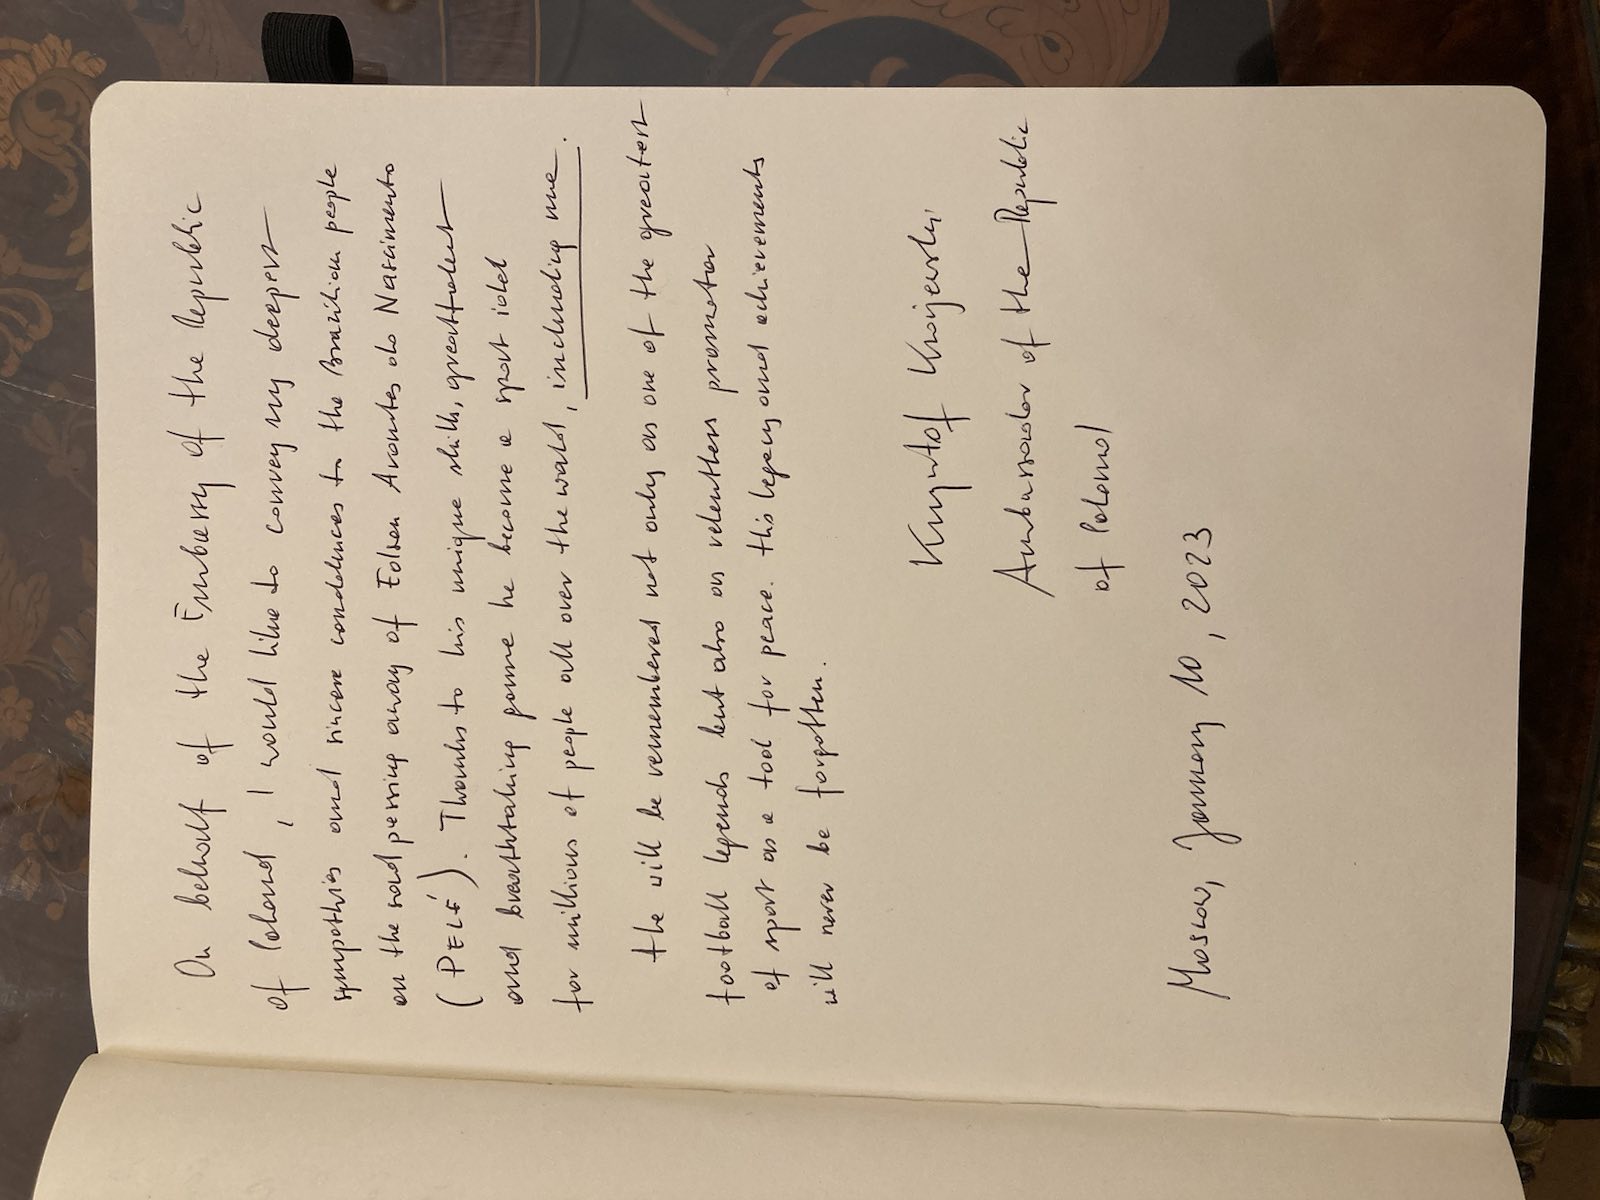 On behalf of the Embassy of the Republic
of Poland, I would like to convey my deepest
sympathies and sincere condolences to the Brazilian people
on the sad passing away of Edson Arantes do Nascimento
(PELÉ). Thanks to his unique skills, great talent
and breathtaking game he become a sport idol
for millions of people all over the world, including me.
He will be remembered not only as one of the greatest
football legends but also as relentless promotor
of sport as a tool for peace. His legacy and achievements
will never be forgotten.
Krzysztof Krajewski
Ambassador of the Republic
of Poland
Moscow, January 10, 2023